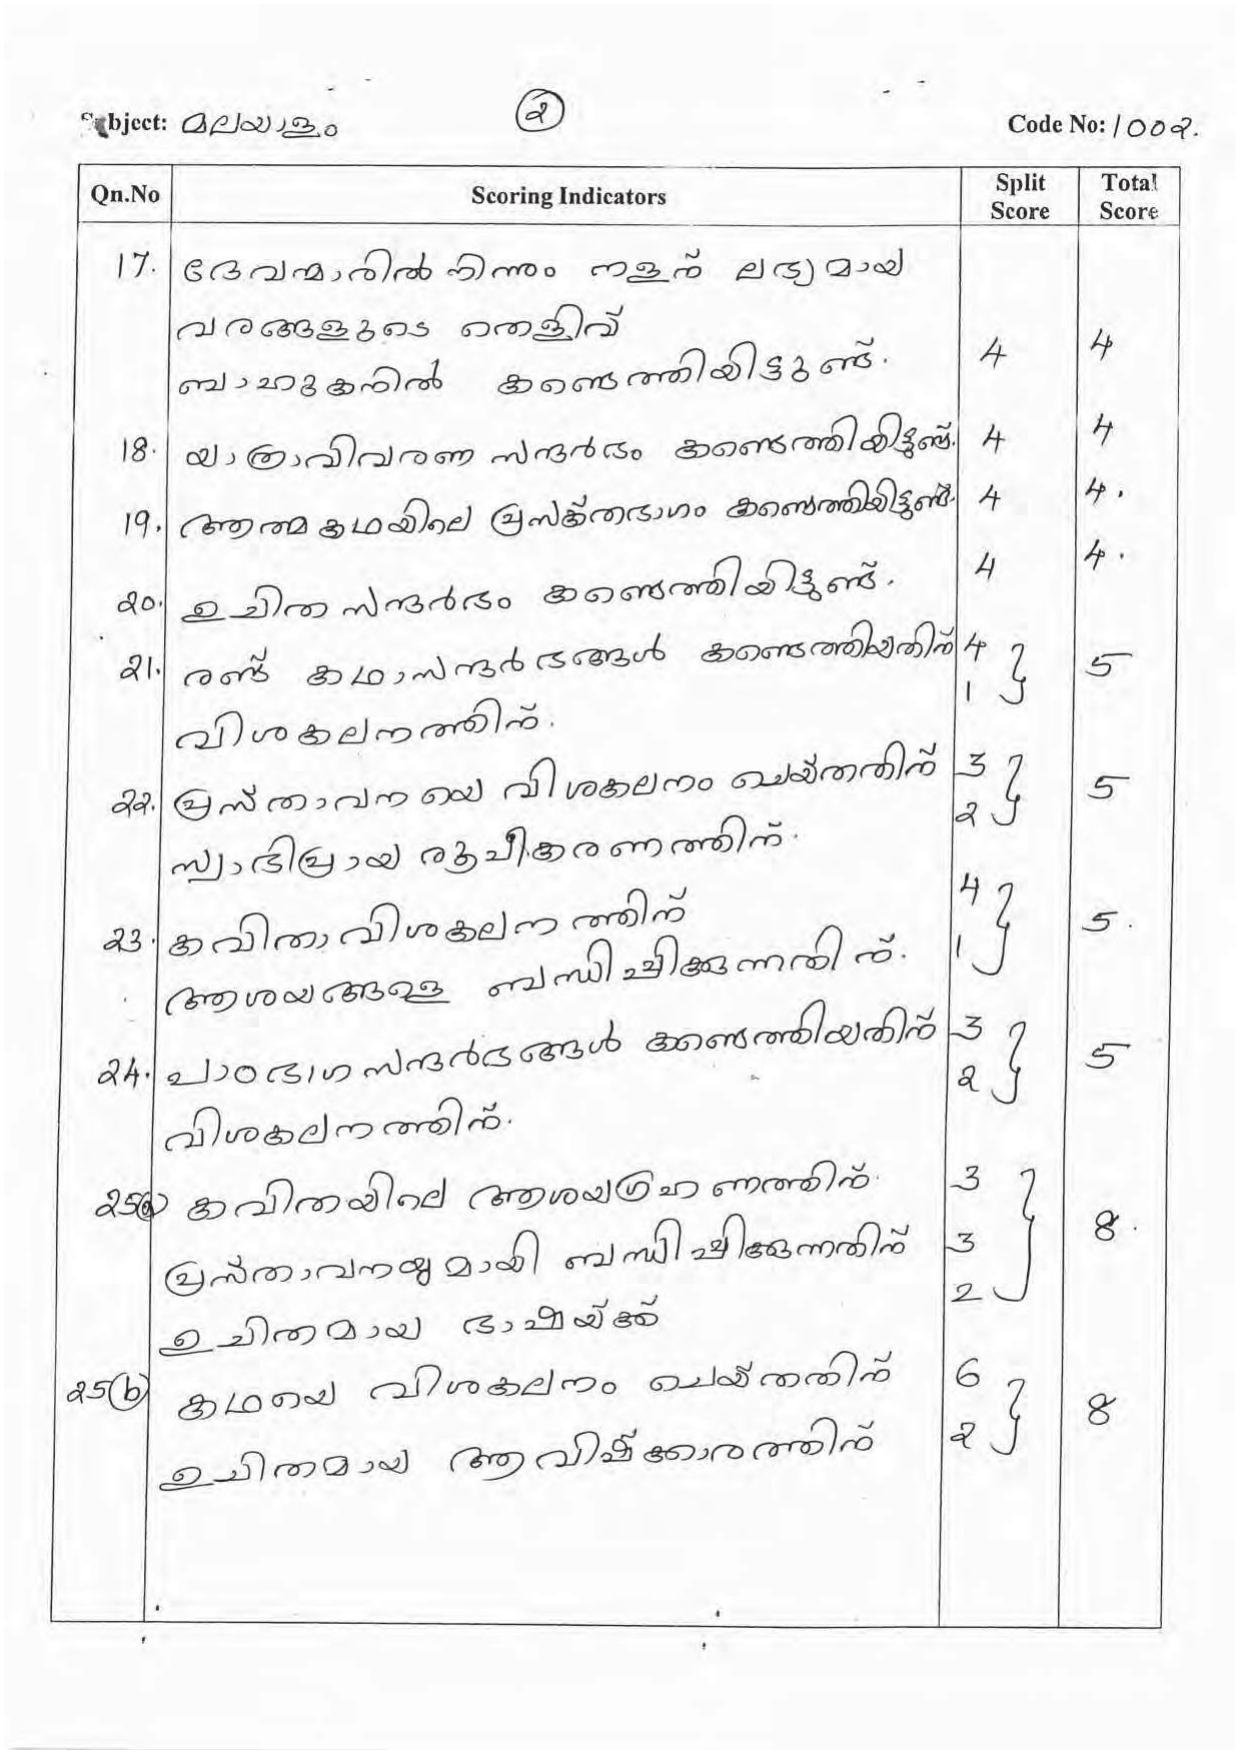 ②
Subject: മലയാളം Code No: 1002.
Qn.No Scoring Indicators Split Score Total Score
17. ദേവന്മാരിൽ നിന്നും നളന് ലഭ്യമായ
വരങ്ങളുടെ തെളിവ്
ബാഹുകനിൽ കണ്ടെത്തിയിട്ടുണ്ട്. 4 4
18. യാത്രാവിവരണ സന്ദർഭം കണ്ടെത്തിയിട്ടുണ്ട്. 4 4
19. ആത്മകഥയിലെ പ്രസക്തഭാഗം കണ്ടെത്തിയിട്ടുണ്ട്. 4 4.
20. ഉചിത സന്ദർഭം കണ്ടെത്തിയിട്ടുണ്ട്. 4 4.
21. രണ്ട് കഥാസന്ദർഭങ്ങൾ കണ്ടെത്തിയതിന് 4 5
വിശകലനത്തിന്. 1
22. പ്രസ്താവനയെ വിശകലനം ചെയ്തതിന് 3 5
സ്വാഭിപ്രായ രൂപീകരണത്തിന്. 2
23. കവിതാവിശകലനത്തിന് 4 5.
ആശയങ്ങളെ ബന്ധിപ്പിക്കുന്നതിന്. 1
24. പാഠഭാഗസന്ദർഭങ്ങൾ കണ്ടെത്തിയതിന് 3 5
വിശകലനത്തിന്. 2
25(a) കവിതയിലെ ആശയഗ്രഹണത്തിന്. 3 8.
പ്രസ്താവനയുമായി ബന്ധിപ്പിക്കുന്നതിന് 3
ഉചിതമായ ഭാഷയ്ക്ക് 2
25(b) കഥയെ വിശകലനം ചെയ്തതിന് 6 8
ഉചിതമായ ആവിഷ്ക്കാരത്തിന് 2